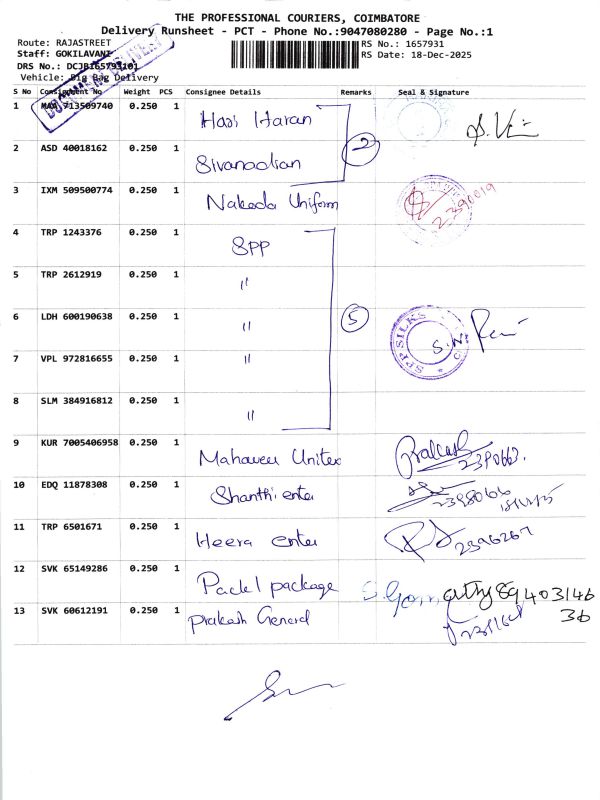 THE PROFESSIONAL COURIERS, COIMBATORE
Delivery Runsheet - PCT - Phone No.:9047080280 - Page No.:1
Route: RAJASTREET
RS No.: 1657931
Staff: GOKILAVANI
RS Date: 18-Dec-2025
DRS No.: DCJB165793101
Vehicle: Big Bag Delivery
S No Consignment No Weight PCS Consignee Details Remarks Seal & Signature
1 MAA 713509740 0.250 1 Hari Haran
2
2 ASD 40018162 0.250 1 Sivanadian
3 IXM 509500774 0.250 1 Nakoda Uniform 2390019
4 TRP 1243376 0.250 1 SPP
5 TRP 2612919 0.250 1 "
6 LDH 600190638 0.250 1 " 5 SPP SILKS
7 VPL 972816655 0.250 1 "
8 SLM 384916812 0.250 1 "
9 KUR 7005406958 0.250 1 Mahaveer Unitex
10 EDQ 11878308 0.250 1 Shanthi enter
11 TRP 6501671 0.250 1 Heera enter 2396267
12 SVK 65149286 0.250 1 Pack1 package
89403146
36
13 SVK 60612191 0.250 1 Prakash General